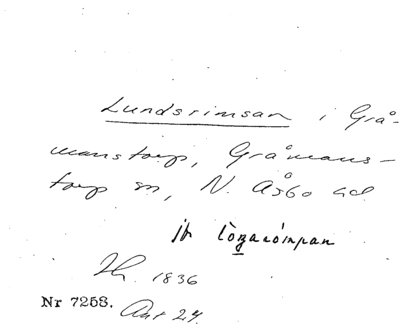 Lundsrimsan i Grå-
manstorp, Gråmans-
torp sn, N. Åsbo hd
jfr
1836
Nr 7258. Ant 24.